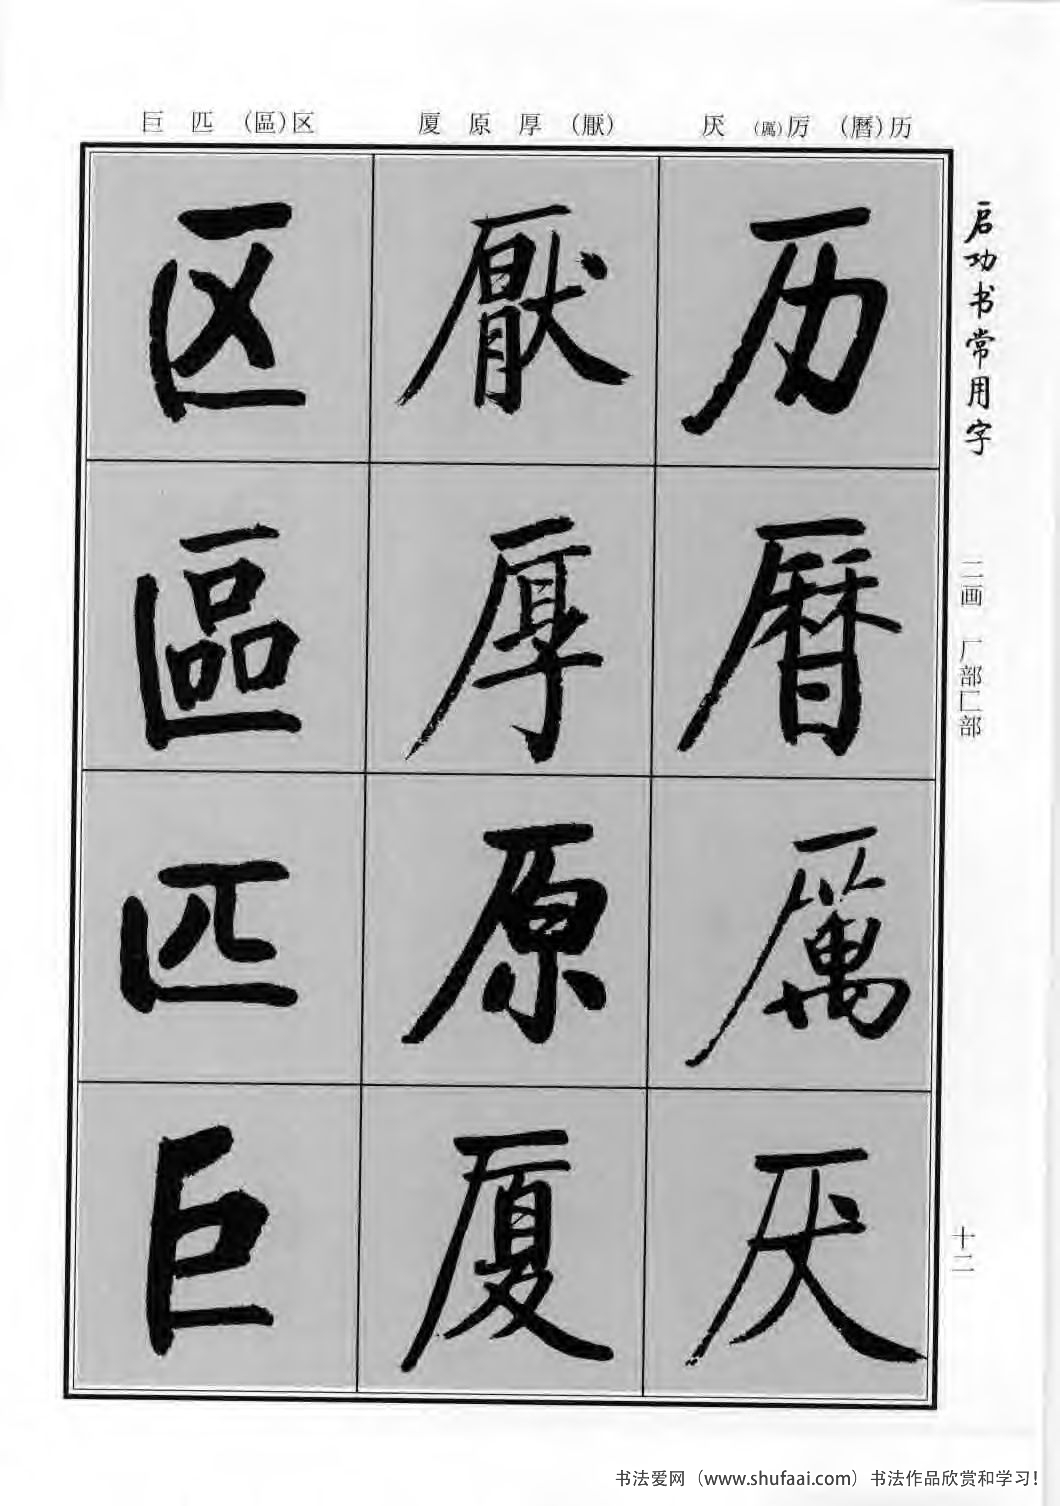 历(曆) 厉(厲) 厌
(厭) 厚 原 厦
区(區) 匹 巨
启功书常用字
二画 厂部匚部
十二
历
曆
厲
厌
厭
厚
原
厦
区
區
匹
巨
书法爱网（www.shufaai.com）书法作品欣赏和学习！